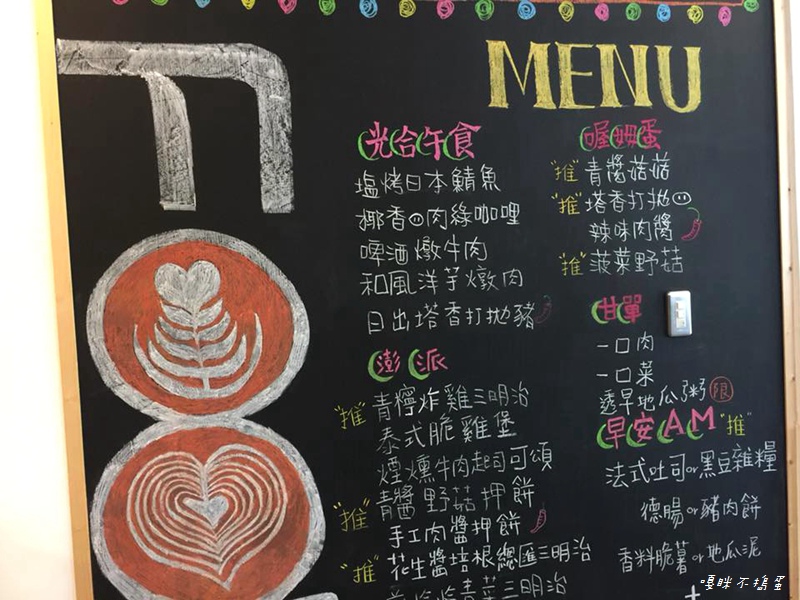 MENU
光合午食
塩烤日本鯖魚
椰香肉綠咖哩
啤酒燉牛肉
和風洋芋燉肉
日出塔香打拋豬
澎派
"推" 青檸炸雞三明治
泰式脆雞堡
煙燻牛肉起司可頌
"推" 青醬野菇押餅
手工肉醬押餅
"推" 花生醬培根總匯三明治
青菜三明治
喔姆蛋
"推" 青醬菇菇
"推" 塔香打拋
辣味肉醬
"推" 菠菜野菇
甘單
一口肉
一口菜
透早地瓜粥 限
早安AM "推"
法式吐司or黑豆雜糧
德腸or豬肉餅
香料脆薯or地瓜泥
嘎眯不搗蛋